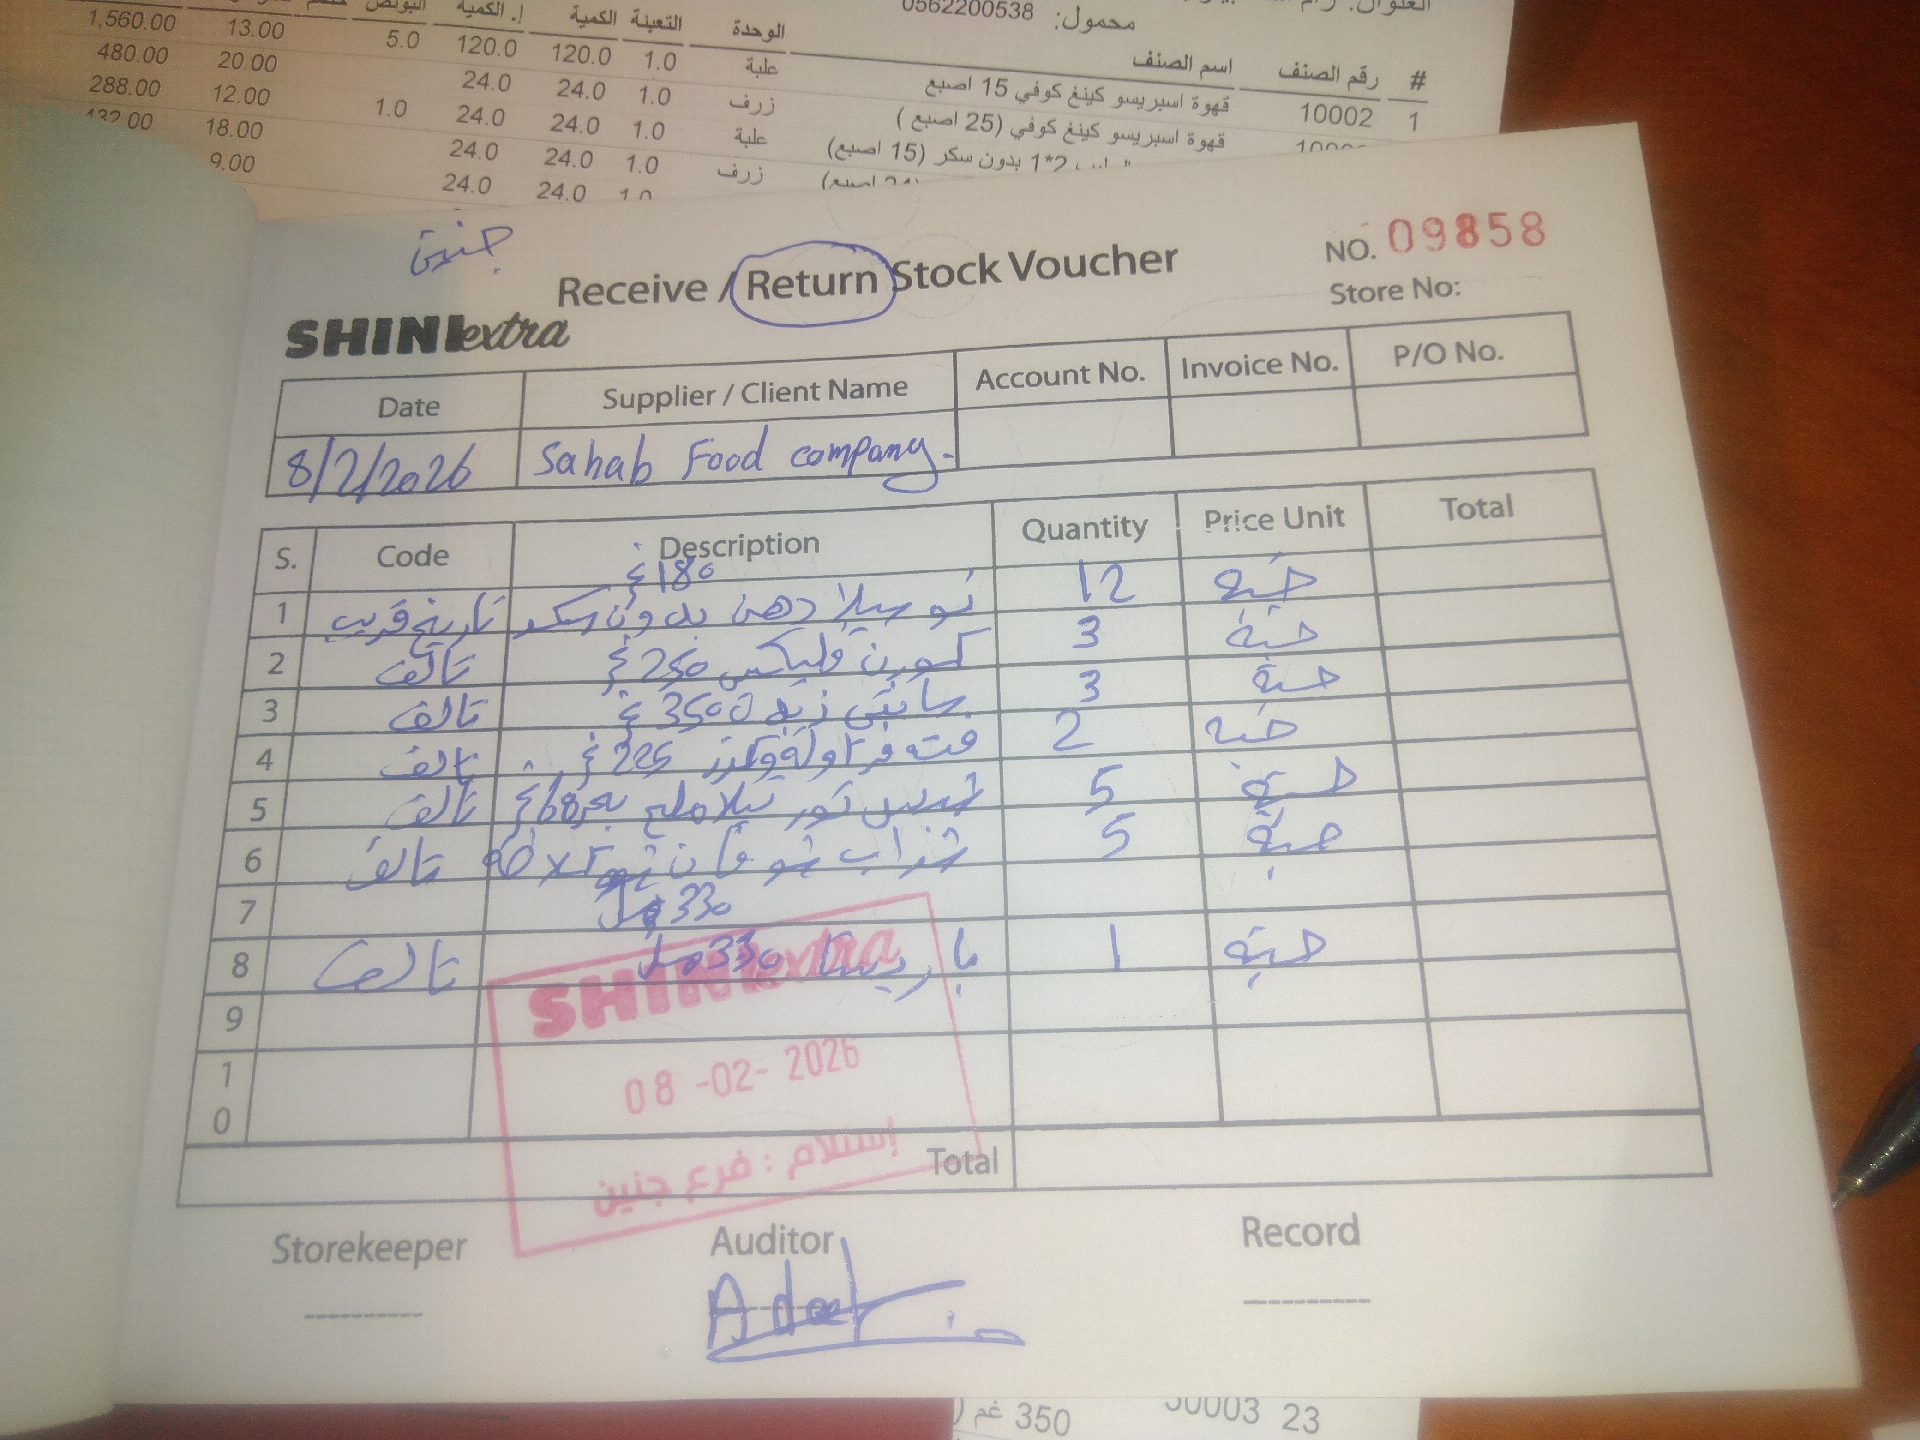 محمول: 0562200538
# رقم الصنف اسم الصنف الوحدة التعبئة الكمية إ. الكمية
1 10002 قهوة اسبريسو كينغ كوفي 15 اصبع علبة 1.0 120.0 120.0 5.0 13.00 1,560.00
قهوة اسبريسو كينغ كوفي (25 اصبع ) زرف 1.0 24.0 24.0 20.00 480.00
1*2 بدون سكر (15 اصبع) علبة 1.0 24.0 24.0 1.0 12.00 288.00
زرف 1.0 24.0 24.0 18.00 432.00
24.0 24.0 9.00
جنين
Receive / Return Stock Voucher
NO. 09858
Store No:
SHINI extra
Date Supplier / Client Name Account No. Invoice No. P/O No.
8/2/2026 Sahab Food company.
S. Code Description Quantity Price Unit Total
180 غ
1 تاريخ قريب نوتيلا دهن بدون سكر 12 حبة
2 تالف كورن فليكس 250 غ 3 حبة
3 تالف 3500 غ 3 حبة
4 تالف فراولة وكرز 225 غ 2 حبة
5 تالف ملح بحر 168 غ 5 حبة
6 تالف شراب شوفان 5 حبة
7 330 مل
8 تالف باريستا 330 مل 1 حبة
9
10
SHINI extra
08 -02- 2026
إستلام : فرع جنين
Total
Storekeeper Auditor Record
Adel
350 غم
30003 23